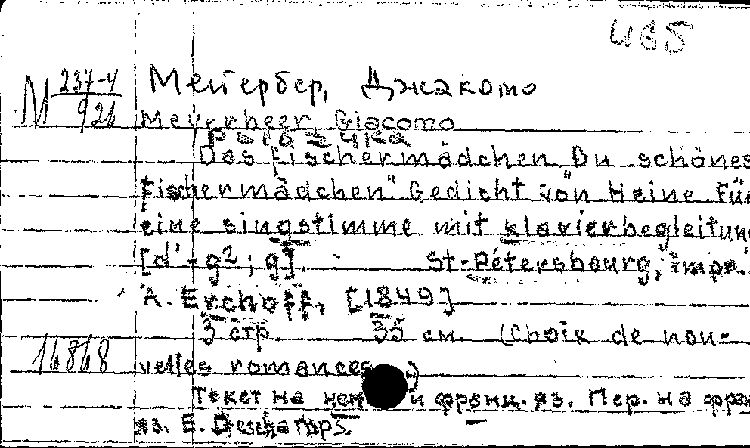 465
М 237-4/926 Мейербер, Джакомо
Meyerbeer, Giacomo
Das Fischermädchen „Du schönes
Fischermädchen" Gedicht von Heine Für
eine singstimme mit klavierbegleitung
[d'-g²; g]. St-Pétersbourg, impr.
A. Erchoff, [1849]
3 стр. 35 см. (Choix de nou-
16868 velles romances
Текст на нем и франц. яз. Пер. на фран
яз. E.